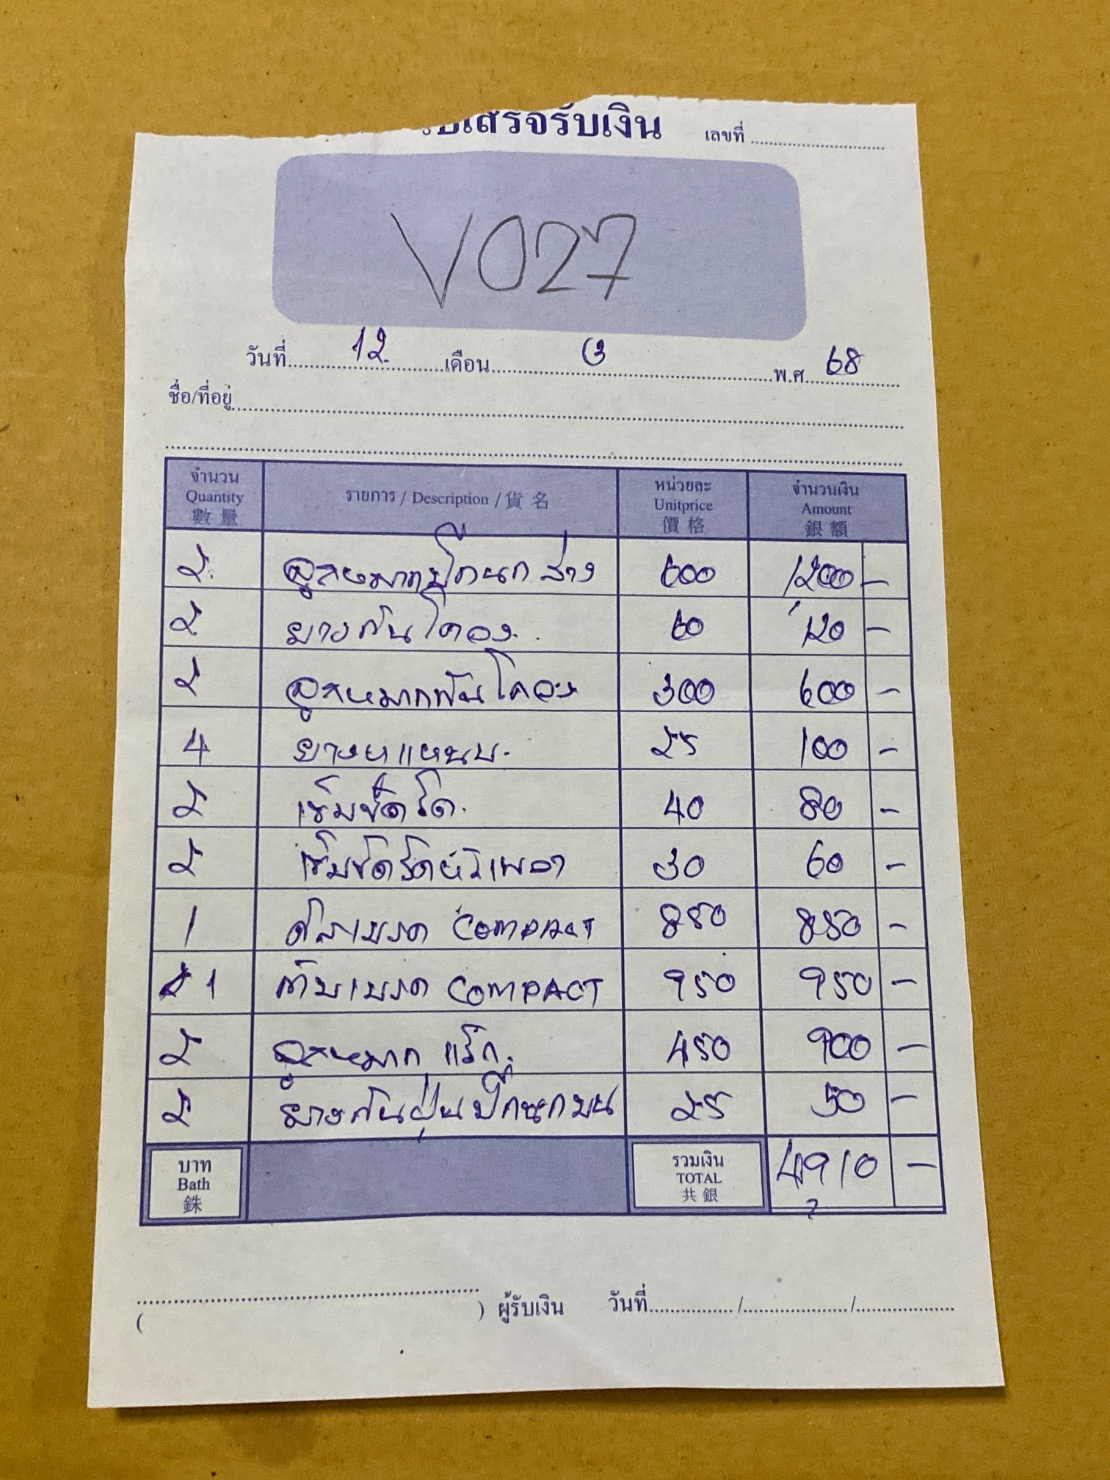 ใบเสร็จรับเงิน เลขที่
V027
วันที่ 12 เดือน 3 พ.ศ. 68
ชื่อ/ที่อยู่
จำนวน รายการ / Description / 貨名 หน่วยละ จำนวนเงิน
Quantity Unitprice Amount
數量 價格 銀額
2 ลูกหมากปีกนกล่าง 600 1200 -
2 ยางกันโคลง 60 120 -
2 ลูกหมากกันโคลง 300 600 -
4 ยางหูแหนบ 25 100 -
2 เข็มขัดรัด 40 80 -
2 เข็มขัดรัดหัวเพลา 30 60 -
1 ดิสเบรค COMPACT 850 850 -
1 ก้ามเบรค COMPACT 950 950 -
2 ลูกหมากแร็ค 450 900 -
2 ยางกันฝุ่นปีกนกบน 25 50 -
บาท รวมเงิน 4910 -
Bath TOTAL
銖 共銀
( ) ผู้รับเงิน วันที่ / /